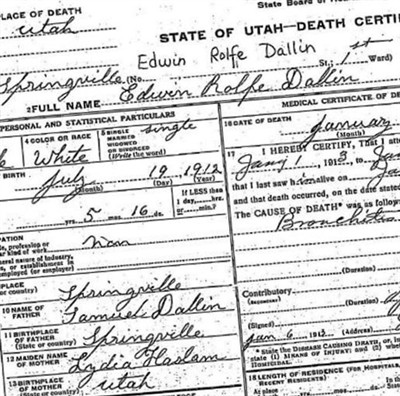 PLACE OF DEATH
State Board of
Utah
STATE OF UTAH—DEATH CERTIF
Edwin Rolfe Dallin
Springville (No. St.; 1st Ward)
2 FULL NAME Edwin Rolfe Dallin
PERSONAL AND STATISTICAL PARTICULARS
4 COLOR OR RACE
White
5 SINGLE
MARRIED
WIDOWED
OR DIVORCED
(Write the word)
single
BIRTH
July 19 1912
(Month) (Day) (Year)
yrs. 5 mos. 16 ds.
If LESS than
1 day, hrs.
or min.?
PATION
profession or
kind of work
general nature of industry,
or establishment in
employed (or employer)
Springville
or country)
10 NAME OF
FATHER
Samuel Dallin
11 BIRTHPLACE
OF FATHER
(State or country)
Springville
12 MAIDEN NAME
OF MOTHER
Lydia Haslam
13 BIRTHPLACE
OF MOTHER
Utah
MEDICAL CERTIFICATE OF DE
16 DATE OF DEATH
January
(Month)
17 I HEREBY CERTIFY, That I atte
Jany 1 1913, to Jan
that I last saw h alive on Ja
and that death occurred, on the date stated
The CAUSE OF DEATH* was as follow
Bronchitis
(Duration)
Contributory
(Duration)
(Signed)
Jan 6 1913 (Address)
*State the DISEASE CAUSING DEATH, or, in
state (1) MEANS OF INJURY; and (2) whether
HOMICIDAL.
18 LENGTH OF RESIDENCE (FOR HOSPITALS,
RECENT RESIDENTS)